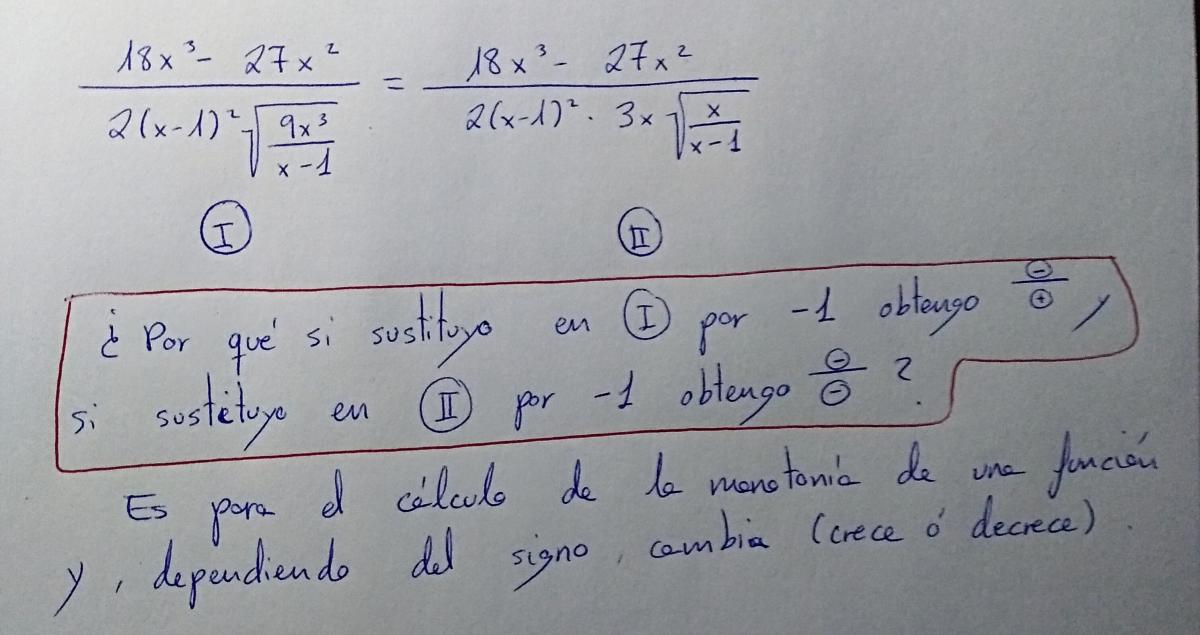 18x³ - 27x² / 2(x-1)² √(9x³ / x-1) = 18x³ - 27x² / 2(x-1)² · 3x √(x / x-1)
Ⓘ Ⓘ︎Ⓘ
¿ Por qué si sustituyo en Ⓘ por -1 obtengo ⊖/⊕ y
si sustituyo en (II) por -1 obtengo ⊖/⊖ ?
Es para el cálculo de la monotonía de una función
y, dependiendo del signo, cambia (crece ó decrece).